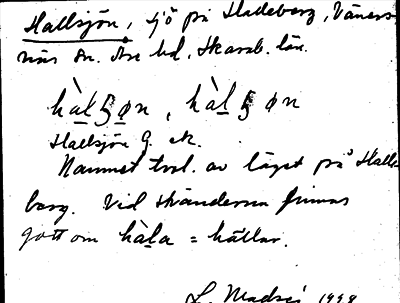 Hallsjön, sjö på Halleberg, Väners-
näs sn. Åse hd. Skarab. län.
hàlʒøn, hàlʒøn
Hallsjön G. ek.
Namnet trol. av läget på Halle-
berg. Vid stränderna finnas
gott om hàla = hällar.
L. Madsé 1928